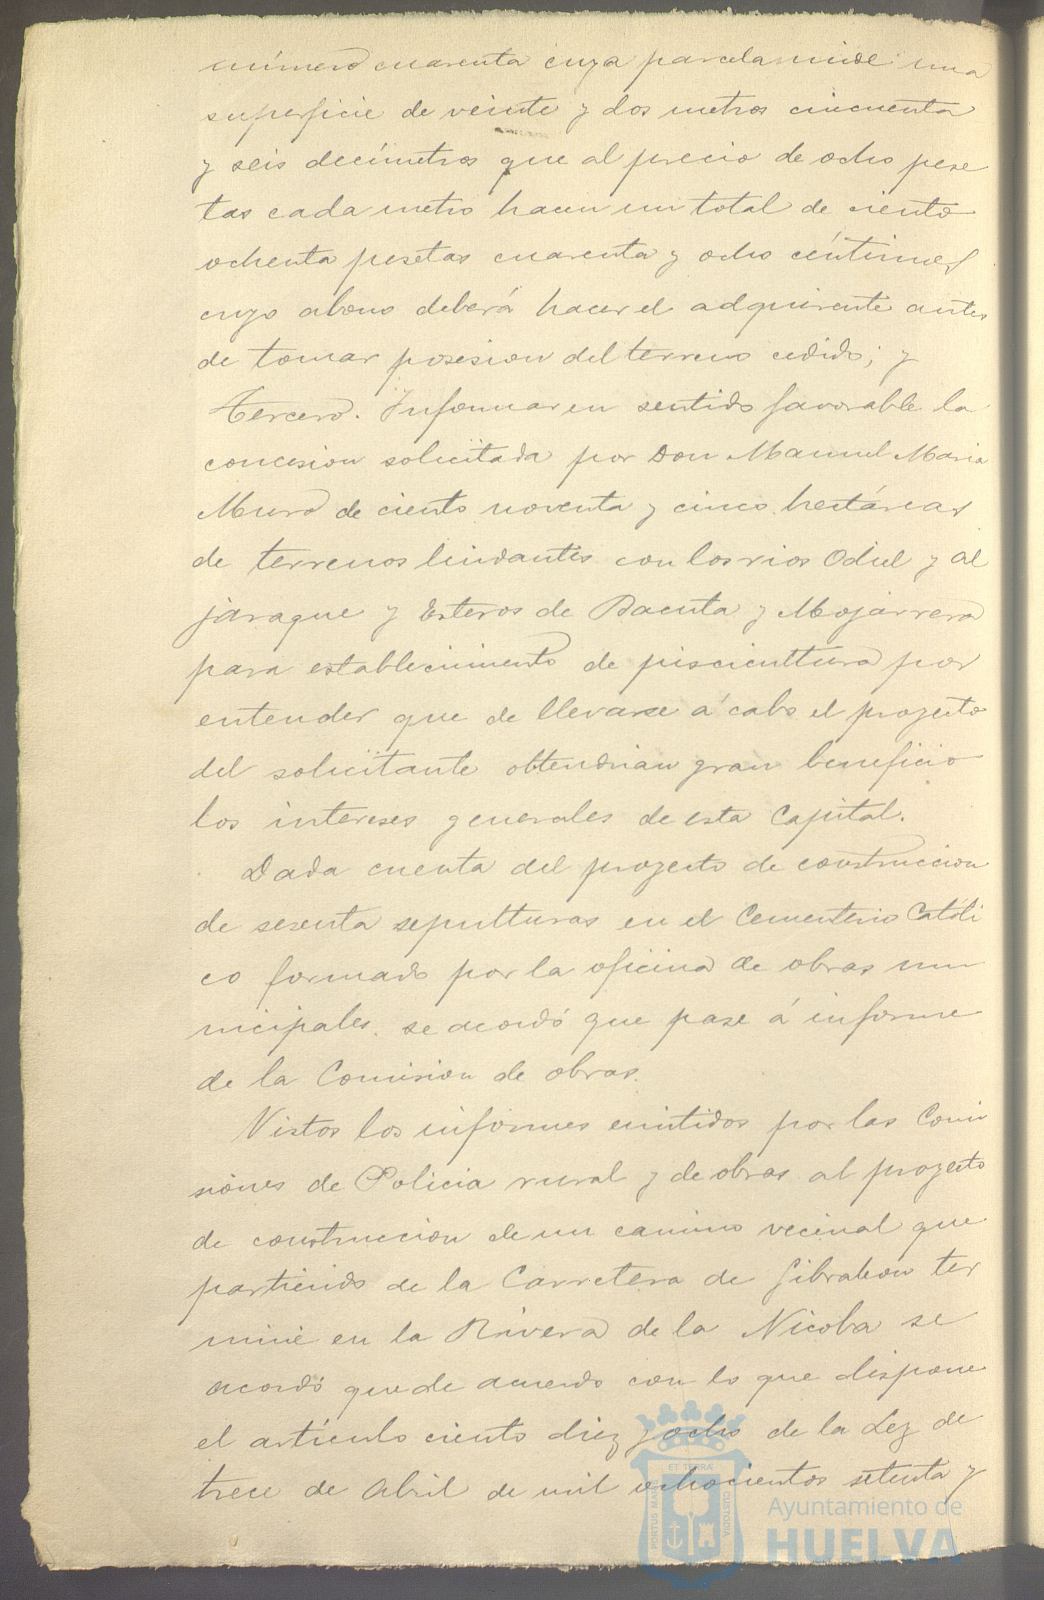 número cuarenta cuya parcela mide una
superficie de veinte y dos metros cincuenta
y seis decímetros que al precio de ocho pese
tas cada metro hacen un total de ciento
ochenta pesetas cuarenta y ocho céntimos
cuyo abono deberá hacer el adquirente antes
de tomar posesion del terreno cedido; y
Tercero. Informar en sentido favorable la
concesion solicitada por Don Manuel Maria
Muro de ciento noventa y cinco hectáreas
de terrenos lindantes con los rios Odiel y al
jaraque y Esteros de Bacuta y Mojarrera
para establecimiento de piscicultura por
entender que de llevarse á cabo el proyecto
del solicitante obtendrian gran beneficio
los intereses generales de esta Capital.
Dada cuenta del proyecto de construccion
de sesenta sepulturas en el Cementerio Católi
co formado por la oficina de obras mu
nicipales, se acordó que pase á informe
de la Comision de obras.
Vistos los informes emitidos por las Comi
siones de Policia rural y de obras al proyecto
de construccion de un camino vecinal que
partiendo de la Carretera de Gibraleon ter
mine en la Rivera de la Nicoba se
acordó que de acuerdo con lo que dispone
el artículo ciento diez y ocho de la Ley de
trece de Abril de mil ochocientos setenta y
ET TERRÆ
PORTUS MARIS
CUSTODIA
Ayuntamiento de
HUELVA